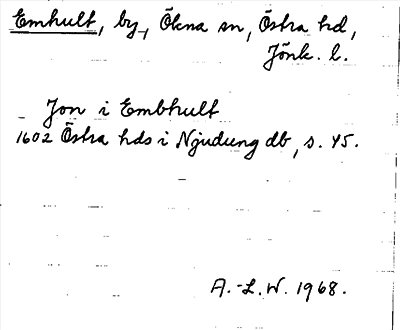 Emhult, by, Ökna sn, Östra hd,
Jönk. l.
Jon i Embhult
1602 Östra hds i Njudung db, s. 45.
A.-L.W. 1968.